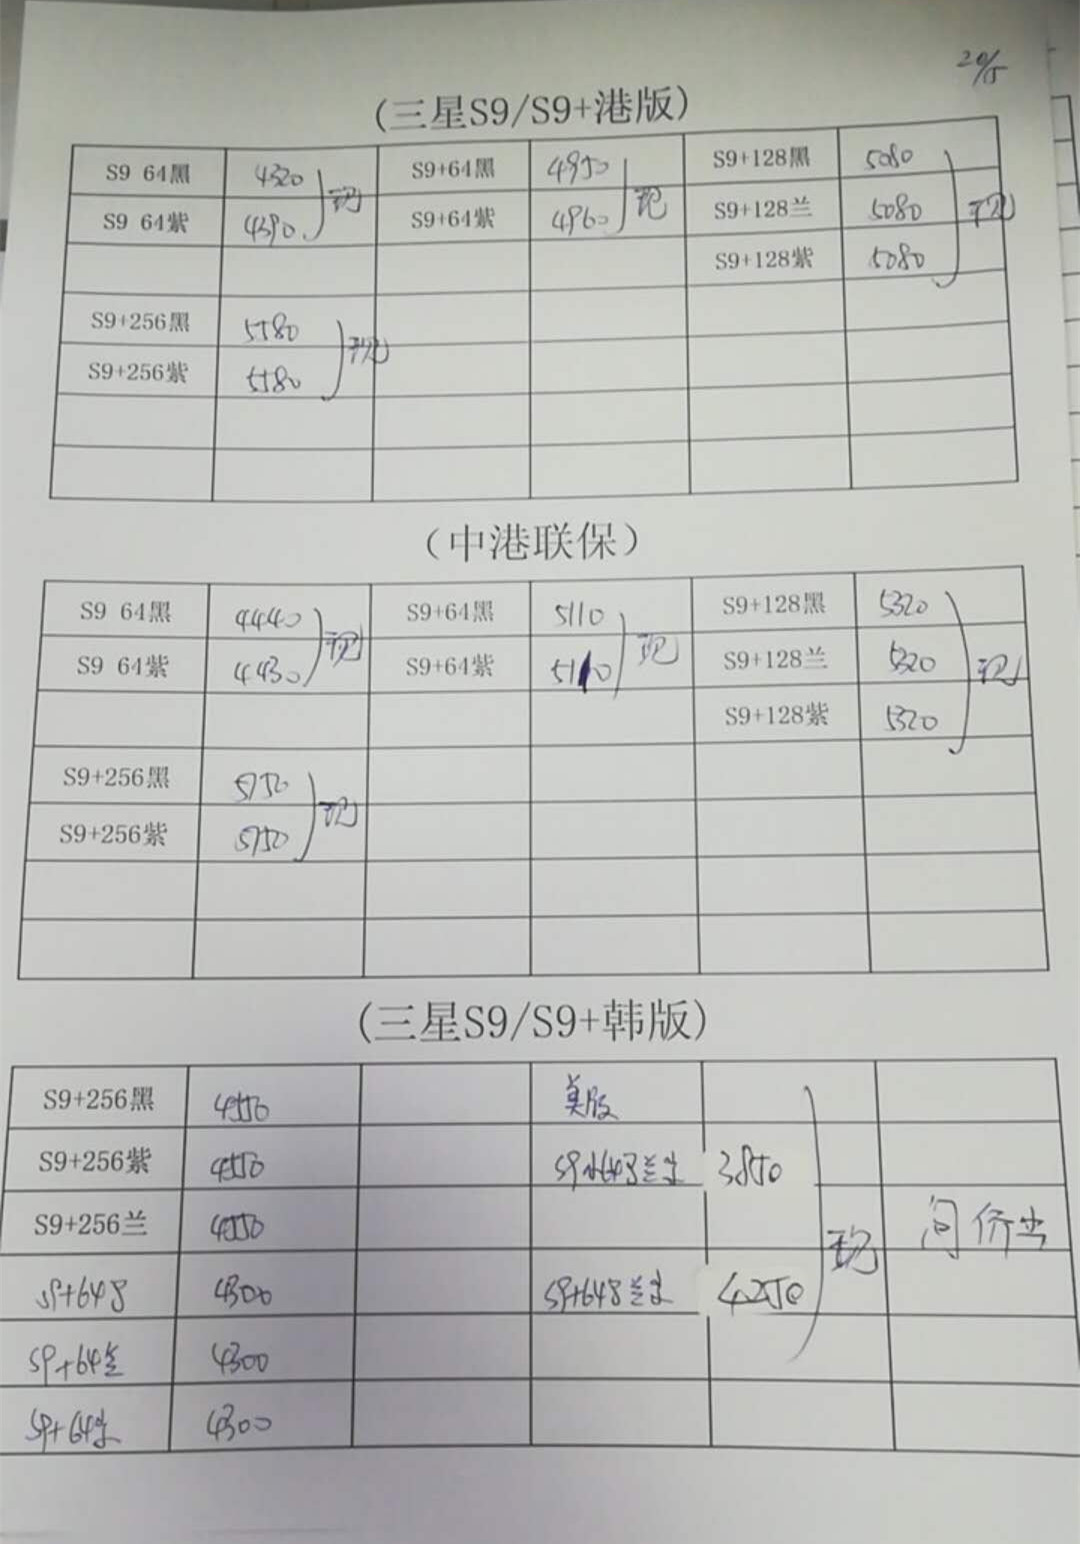 20/5
(三星S9/S9+港版)
S9 64黑 4320 S9+64黑 4950 S9+128黑 5080
现 现 现
S9 64紫 4390 S9+64紫 4960 S9+128兰 5080
S9+128紫 5080
S9+256黑 5580
现
S9+256紫 5580
(中港联保)
S9 64黑 4440 S9+64黑 5110 S9+128黑 5320
现 现 现
S9 64紫 4430 S9+64紫 5110 S9+128兰 5320
S9+128紫 5320
S9+256黑 5750
现
S9+256紫 5750
(三星S9/S9+韩版)
S9+256黑 4550 美版
S9+256紫 4550 3850
S9+256兰 4550 现
S9+64 4300 S9+64 4250
S9+64兰 4300
S9+64 4300